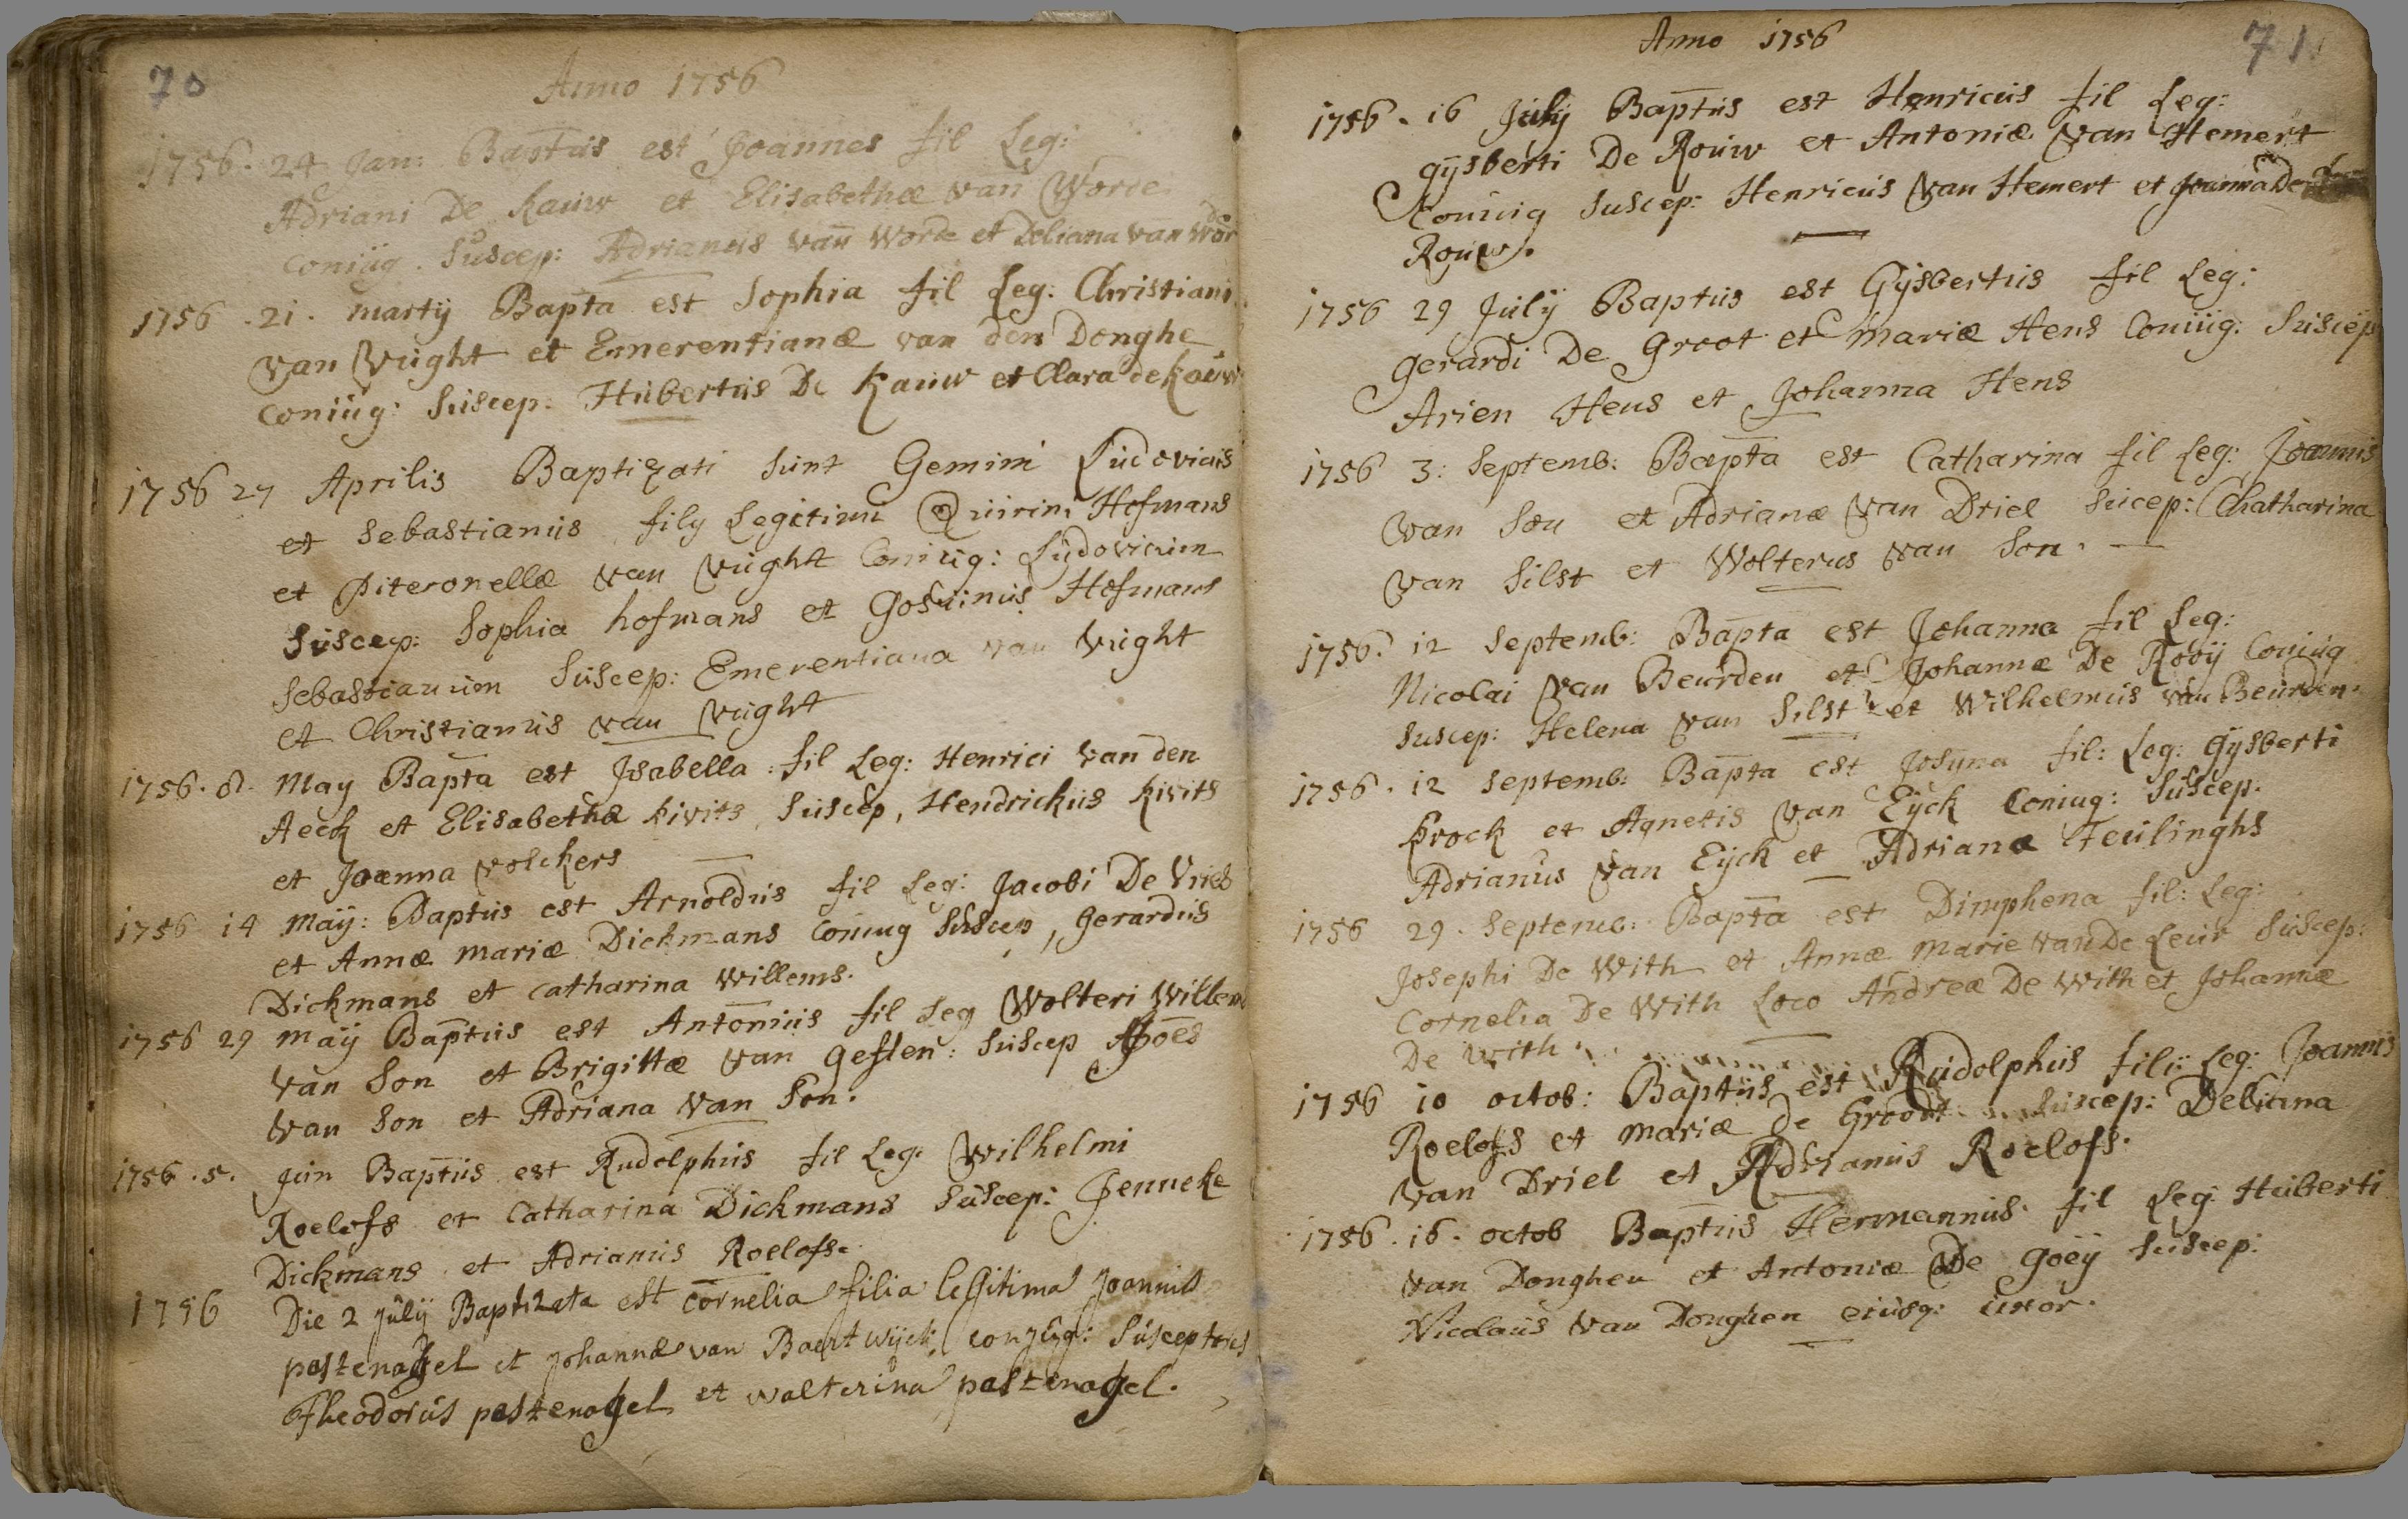 70
Anno 1756
1756. 24 Jan: Baptus est Joannes fil Leg:
Adriani De Kauw et Elisabethæ van Worde
coniug. Suscep: Adrianus van Worde et Deliana van Word
1756. 21. martij Bapta est Sophia fil Leg: Christiani
van Vught et Emerentianæ van den Donghe
coniug: Suscep: Hubertus De Kauw et Clara de Kauw
1756 27 Aprilis Baptizati sunt Gemini Ludovicus
et Sebastianus filij Legitimi Quirini Hofmans
et Piteronellæ van Vught Coniug: Ludovicum
Suscep: Sophia hofmans et Goswinus Hofmans
Sebastianum Suscep: Emerentiana van Vught
et Christianus van Vught
1756. 8. May Bapta est Isabella fil Leg: Henrici van den
Aeck et Elisabethæ Kivits, Suscep, Hendrickus Kivits
et Joanna volckers
1756 14 maij: Baptus est Arnoldus fil Leg: Jacobi De Vries
et Annæ mariæ Dickmans Coniug Suscep, Gerardus
Dickmans et catharina willems.
1756 29 maij Baptus est Antonius fil Leg Wolteri Willem
van Son et Brigittæ van Geflen: Suscep Joes
van Son et Adriana van Son.
1756. 5. Jun Baptus est Rudolphus fil Leg. Wilhelmi
Roelofs et Catharina Dickmans Suscep: Jenneke
Dickmans et Adrianus Roelofs.
1756 Die 2 julij Baptizata est cornelia filia legitima Joannis
pastenagel et johannæ van Baertwijck, conjug: Susceptores
Theodorus pastenagel et walterina pastenagel.
Anno 1756
71
1756. 16 July Baptus est Henricus fil Leg:
gijsberti De Rouw et Antoniæ van Hemert
Coniug Suscep: Henricus van Hemert et Joanna De
Rouw.
1756 29 Julij Baptus est Gijsbertus fil Leg:
Gerardi De Groot et mariæ Hens Coniug: Suscep
Arien Hens et Johanna Hens
1756 3: Septemb: Bapta est Catharina fil Leg: Joannis
van Son et Adrianæ van Driel Sucep: Chatharina
van Silst et Wolterus van Son.
1756. 12 Septemb: Bapta est Johanna fil Leg:
Nicolai van Beurden et Johannæ De Rooij Coniug
Suscep: Helena van Silst et Wilhelmus van Beurden.
1756. 12 septemb: Bapta est Josyna fil: Leg: Gijsberti
Krock et Agnetis van Eijck Coniug: Suscep.
Adrianus van Eijck et Adriana Teulinghs
1756 29. Septemb: Bapta est Dimphena fil: Leg:
Josephi De With et Annæ Marie van De Leur Suscep:
Cornelia De With Loco Andreæ De With et Johannæ
De With.
1756 10 octob: Baptus est Rudolphus fili: Leg: Joannis
Roelofs et mariæ de Groodt Suscep: Deliana
van Driel et Adrianus Roelofs.
1756. 16. octob Baptus Hermannus. fil Leg Huberti
van Donghen et Antoniæ De Goeij Suscep:
Nicolaus van Donghen eiusq: uxor.